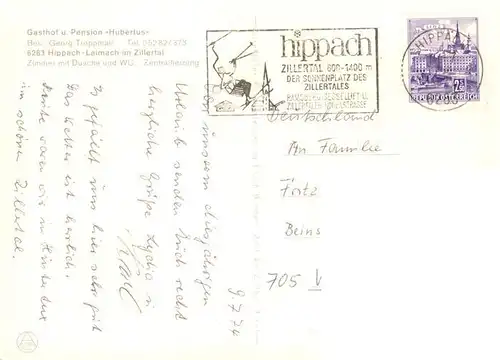 Gasthof u. Pension »Hubertus«
Bes. Georg Troppmair Tel. 05282/373
6283 Hippach-Laimach im Zillertal
Zimmer mit Dusche und WC Zentralheizung
hippach
ZILLERTAL 600-1400 m
DER SONNENPLATZ DES
ZILLERTALES
HIPPACH
Von unserem diesjährigen
Urlaub senden Euch recht
herzliche Grüße Lydia u.
Es gefällt uns hier sehr gut
Das Wetter ist herrlich.
Heute waren wir in Hintertux
im schönen Zillertal.
9.7.74
Deutschland
An Familie
Beins
705